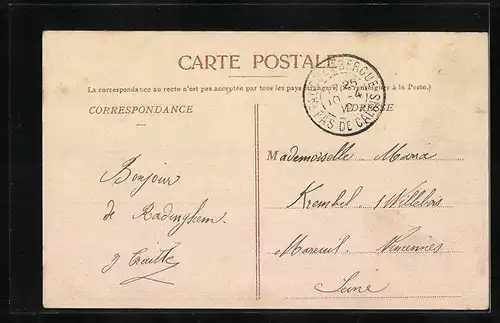 CARTE POSTALE
La correspondance au recto n'est pas acceptée par tous les pays étrangers (Se renseigner à la Poste.)
CORRESPONDANCE
ADRESSE
BERGUES
25
10 -4
PAS DE CALAIS
Mademoiselle Maria
Krembel 1 Willebois
Mareuil Vincennes
Seine
Bonjour
de Radinghem